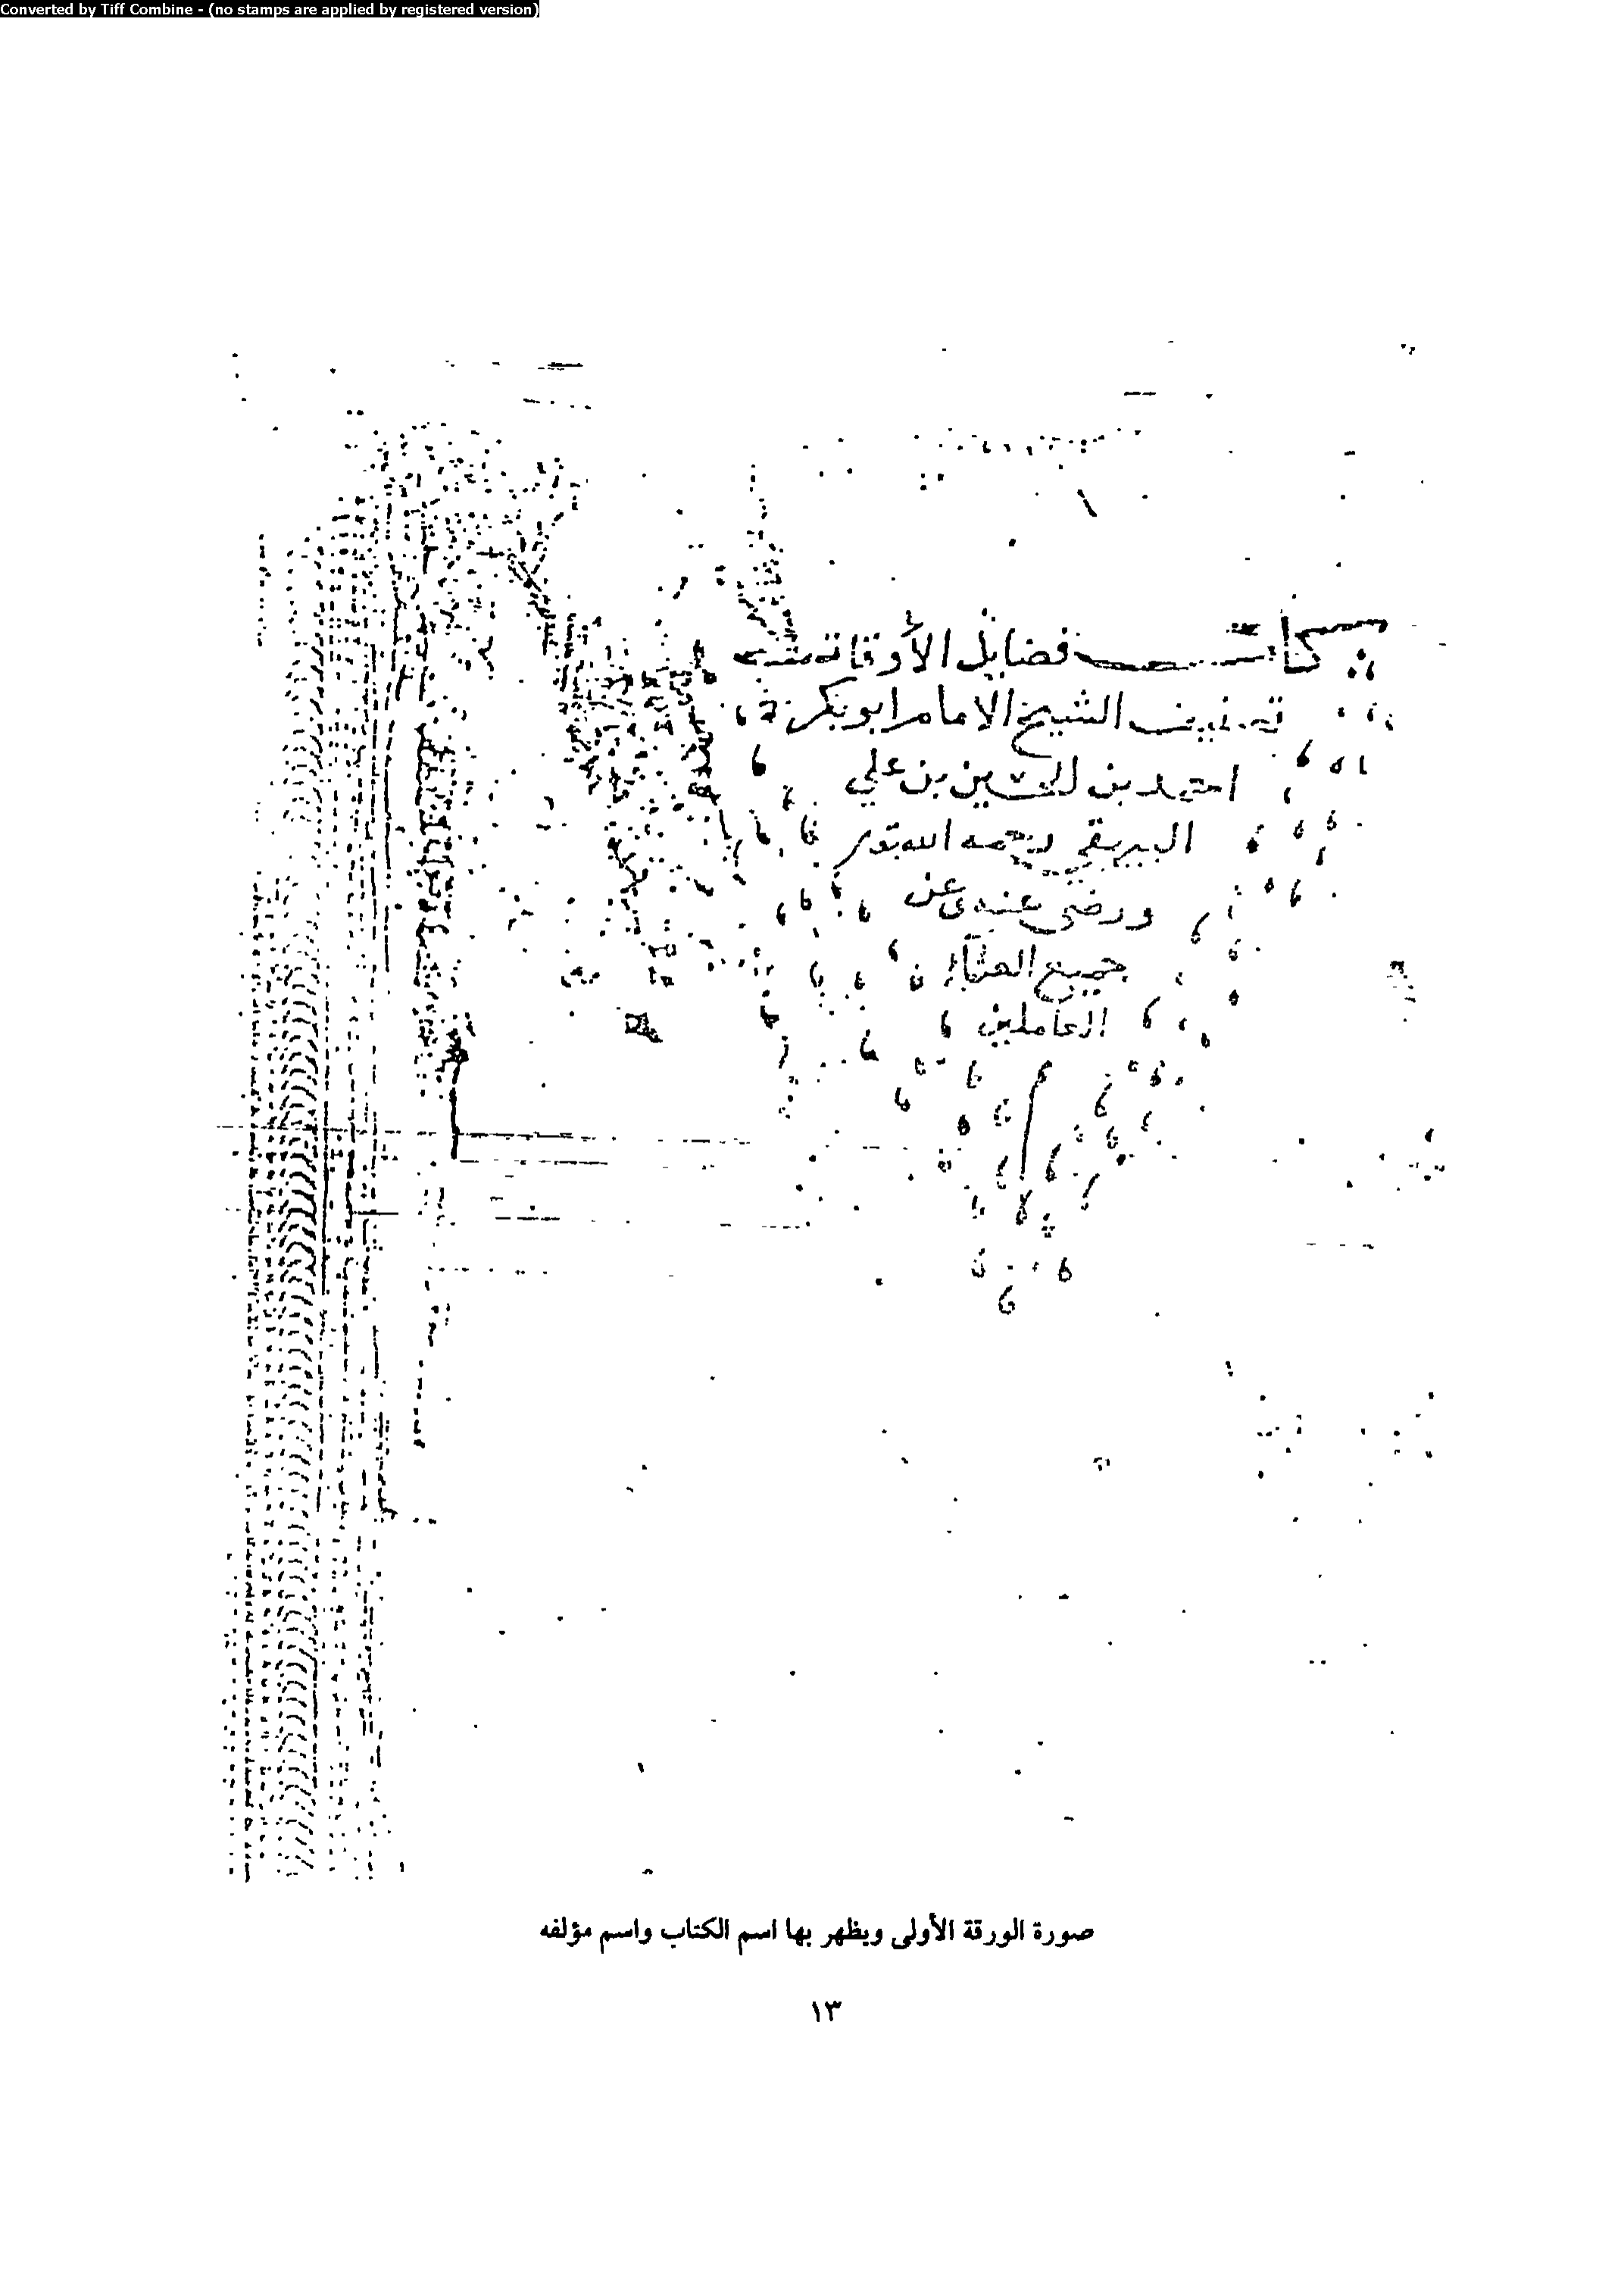 Converted by Tiff Combine - (no stamps are applied by registered version)
كتاب فضايل الأوقات
تصنيف الشيخ الامام ابو بكر
احمد بن الحسين بن علي
البيهقي رحمه الله
ورضى عنه وعن
جميع العلماء
العاملين
صورة الورقة الأولى ويظهر بها اسم الكتاب واسم مؤلفه
١٣